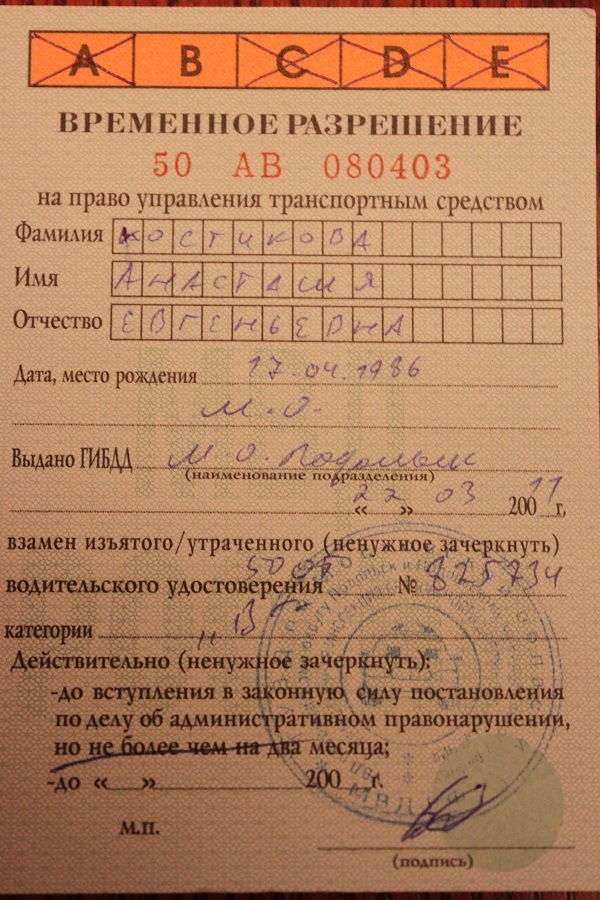 A B C D E
ВРЕМЕННОЕ РАЗРЕШЕНИЕ
50 АВ 080403
на право управления транспортным средством
Фамилия КОСТИКОВА
Имя АНАСТАСИЯ
Отчество ЕВГЕНЬЕВНА
Дата, место рождения 17.04.1986
М.О.
Выдано ГИБДД М.О. Подольск
(наименование подразделения)
« 22 » 03 200 11 г.
взамен изъятого/утраченного (ненужное зачеркнуть)
водительского удостоверения 50 № 825734
категории „В"
Действительно (ненужное зачеркнуть):
-до вступления в законную силу постановления
по делу об административном правонарушении,
но не более чем на два месяца;
-до « » 200 г.
М.П.
(подпись)